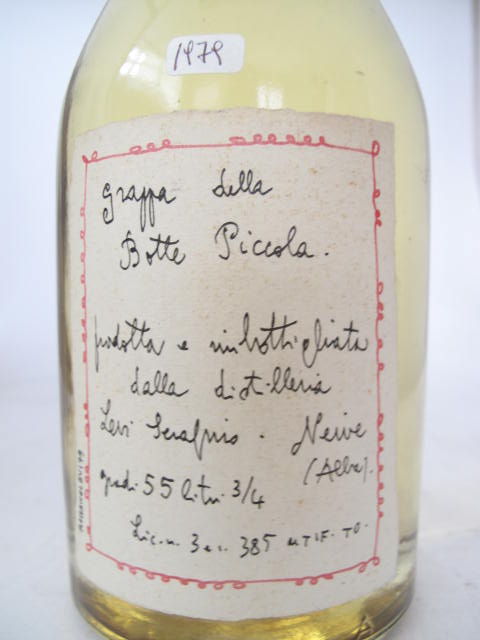 1979
grappa della
Botte Piccola.
prodotta e imbottigliata
dalla distilleria
Levi Serafino. Neive
(Alba).
gradi 55 litri 3/4
Lic. n. 3 e i. 385 UTIF. TO.